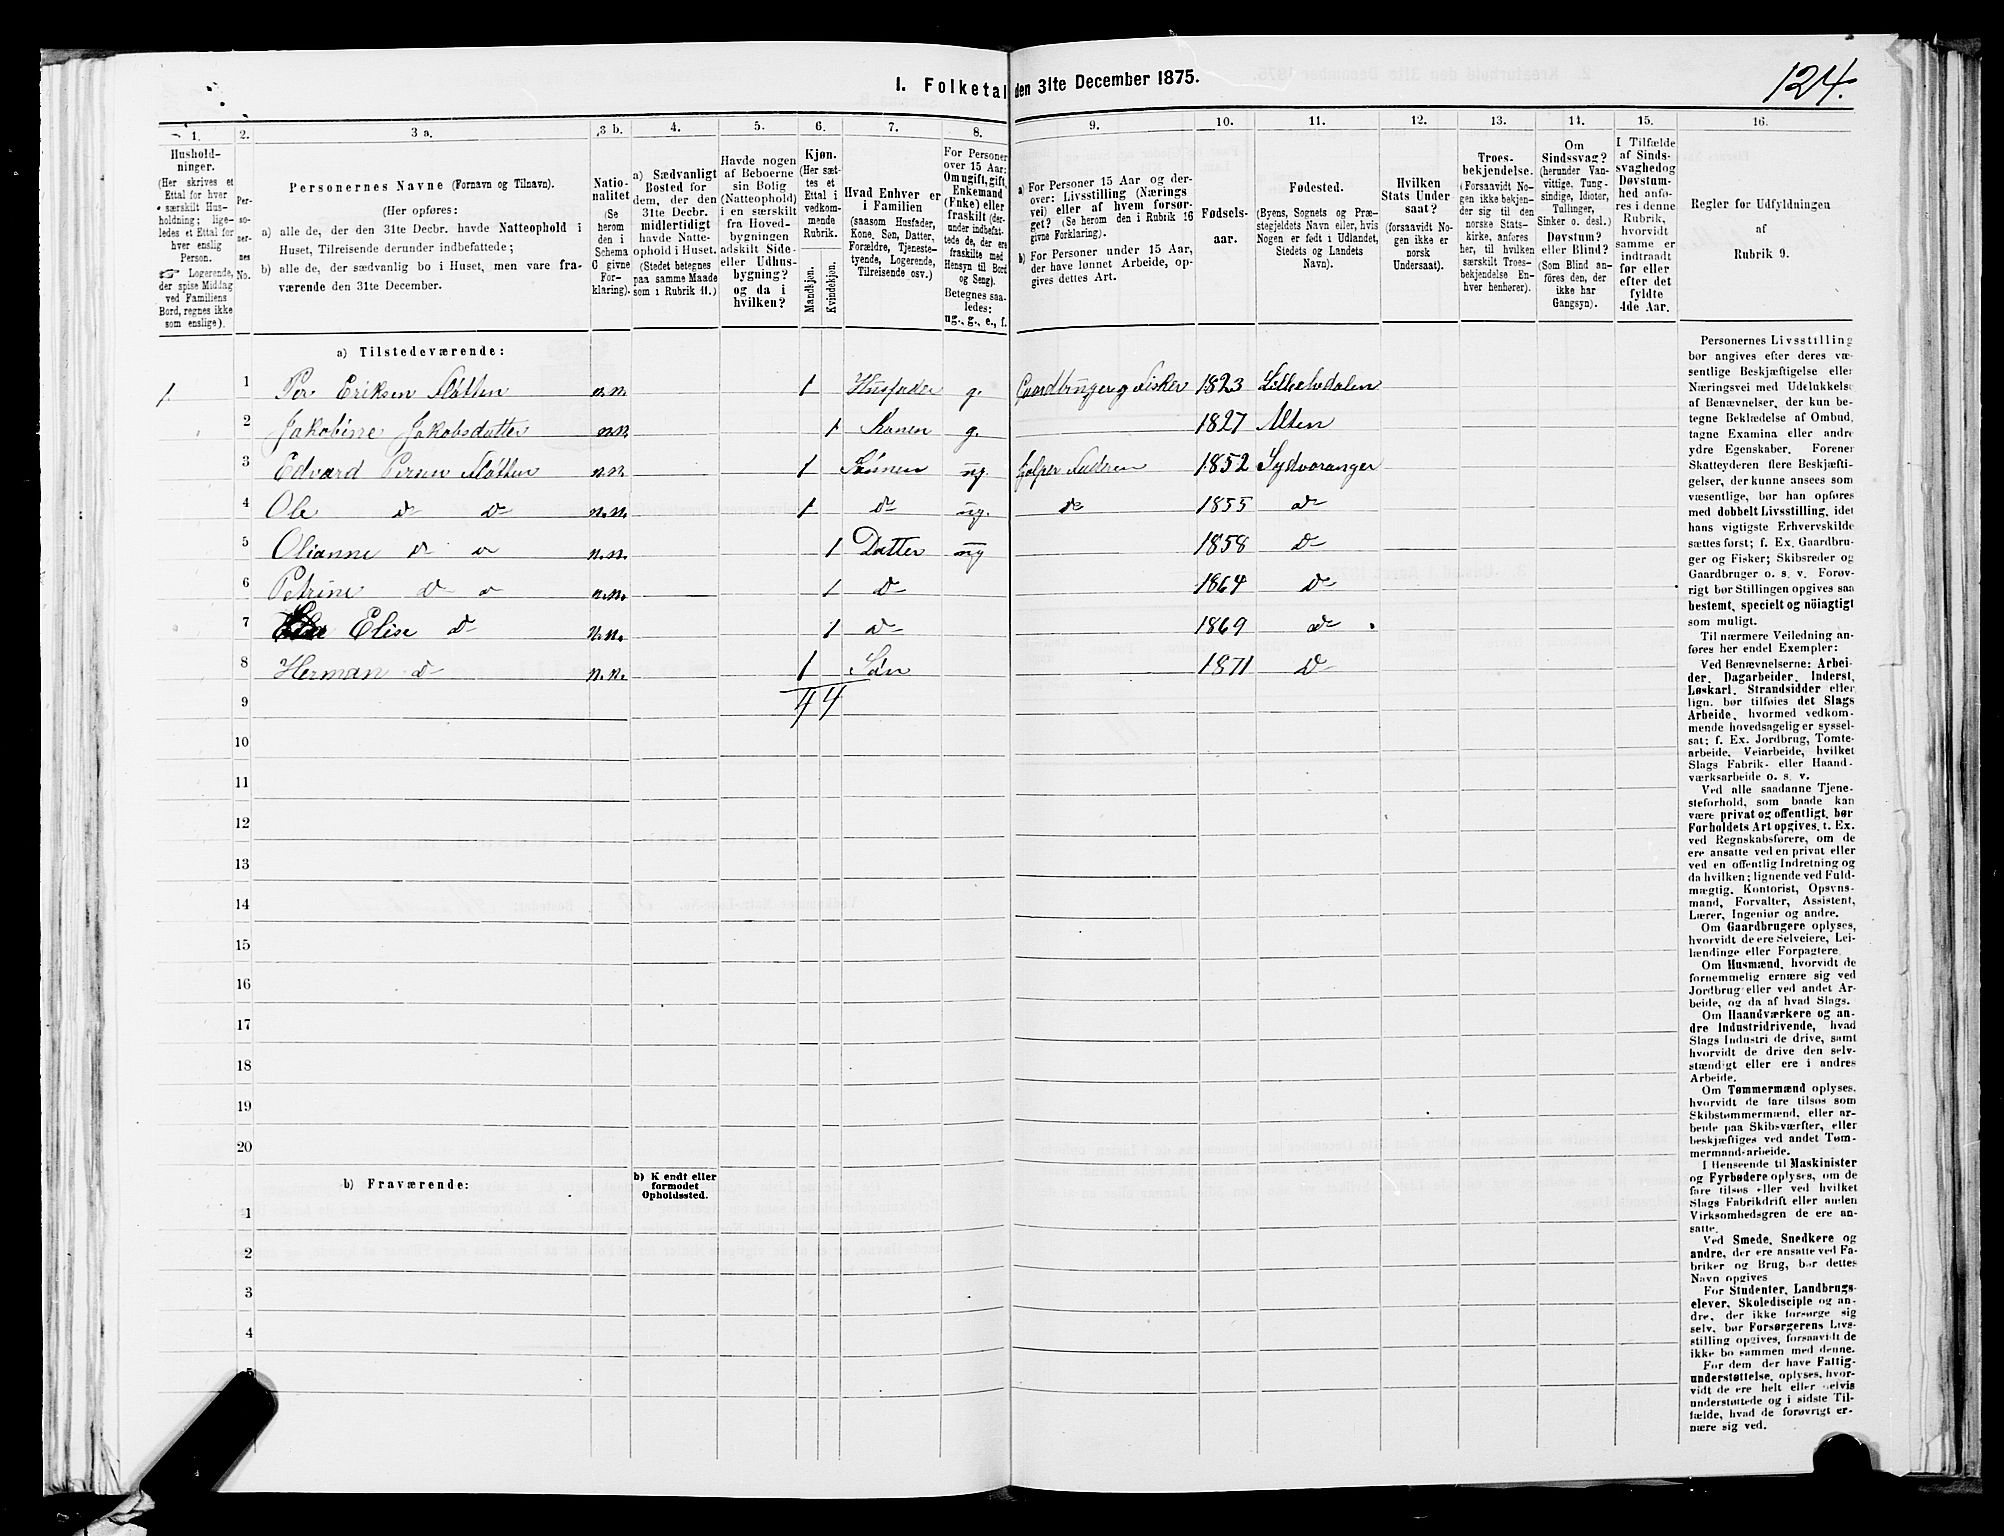 I. Folketal den 31te December 1875.
124.
1. 2. 3 a. 3 b. 4. 5. 6. 7. 8. 9. 10. 11. 12. 13. 14. 15. 16.
Hushold-
ninger.
(Her skrives et
Ettal for hver
særskilt Hus-
holdning; lige-
ledes et Ettal for
hver enslig
Person.
Logerende,
der spise Middag
ved Familiens
Bord, regnes ikke
som enslige).
Per-
so-
ner-
nes
No.
Personernes Navne (Fornavn og Tilnavn).
(Her opføres:
a) alle de, der den 31te Decbr. havde Natteophold i
Huset, Tilreisende derunder indbefattede;
b) alle de, der sædvanlig bo i Huset, men vare fra-
værende den 31te December.
Natio-
nalitet
(Se
herom
den i
Schema
C givne
For-
klaring).
a) Sædvanligt
Bosted for
dem, der den
31te Decbr.
midlertidigt
havde Natte-
ophold i Huset.
(Stedet betegnes
paa samme Maade
som i Rubrik 11.)
Havde nogen
af Beboerne
sin Bolig
(Natteophold)
i en særskilt
fra Hoved-
bygningen
adskilt Side-
eller Udhus-
bygning?
og da i
hvilken?
Kjøn.
(Her sæt-
tes et
Ettal i
vedkom-
mende
Rubrik.
Mandkjøn.
Kvindekjøn.
Hvad Enhver er
i Familien
(saasom Husfader,
Kone, Søn, Datter,
Forældre, Tjeneste-
tyende, Logerende,
Tilreisende osv.)
For Personer
over 15 Aar:
Om ugift, gift,
Enkemand
(Enke) eller
fraskilt (der-
under indbefat-
tede de, der ere
fraskilte med
Hensyn til Bord
og Seng).
Betegnes saa-
ledes:
ug., g., e., f.
a) For Personer 15 Aar og der-
over: Livsstilling (Nærings
vei) eller af hvem forsør-
get? (Se herom den i Rubrik 16
givne Forklaring).
b) For Personer under 15 Aar,
der have lønnet Arbeide, op-
gives dettes Art.
Fødsels-
aar.
Fødested.
(Byens, Sognets og Præ-
stegjeldets Navn eller, hvis
Nogen er født i Udlandet,
Stedets og Landets
Navn).
Hvilken
Stats Under-
saat?
(forsaavidt No-
gen ikke er
norsk
Undersaat).
Troes-
bekjendelse.
(Forsaavidt No-
gen ikke bekjen-
der sig til den
norske Stats-
kirke, anføres
her, til hvilken
særskilt Troes-
bekjendelse En-
hver henhører).
Om
Sindssvag?
(herunder Van-
vittige, Tung-
sindige, Idioter,
Tullinger,
Sinker o. desl.)
Døvstum?
eller Blind?
(Som Blind an-
føres den, der
ikke har
Gangsyn).
I Tilfælde
af Sinds-
svaghed og
Døvstum-
hed anfø-
res i denne
Rubrik,
hvorvidt
samme er
indtraadt
før eller
efter det
fyldte
4de Aar.
Regler for Udfyldningen
af
Rubrik 9.
a) Tilstedeværende:
1 1 Per Eriksen n.n. 1 Husfader g. Gaardbruger og Fisker 1823
2 Jakobine Jakobsdatter n.n. 1 Konen g. 1827 Alten
3 Edvard n.n. 1 Sønnen ug. hjelper Faderen 1852 Sydvaranger
4 Ole d d n.n. 1 d ug. do 1855 d
5 Olianne d d n.n. 1 Datter ug 1858 d
6 Petrine d d n.n. 1 d 1864 d
7 Elise d n.n. 1 d 1869 d
8 Herman d n.n. 1 Søn 1871 d
9 4 4
10
11
12
13
14
15
16
17
18
19
20
b) Fraværende:
b) Kjendt eller
formodet
Opholdssted.
1
2
3
4
5
Personernes Livsstilling
bør angives efter deres væ-
sentlige Beskjæftigelse eller
Næringsvei med Udelukkelse
af Benævnelser, der kun be-
tegne Beklædelse af Ombud,
tagne Examina eller andre
ydre Egenskaber. Forener
Skatteyderen flere Beskjæfti-
gelser, der kunne ansees som
væsentlige, bør han opføres
med dobbelt Livsstilling, idet
hans vigtigste Erhvervskilde
sættes først; f. Ex. Gaardbru-
ger og Fisker; Skibsreder og
Gaardbruger o. s. v. Forøv-
rigt bør Stillingen opgives saa
bestemt, specielt og nöiagtigt
som muligt.
Til nærmere Veiledning an-
føres her endel Exempler:
Ved Benævnelserne: Arbei-
der, Dagarbeider, Inderst,
Løskarl, Strandsidder eller
lign. bør tilføies det Slags
Arbeide, hvormed vedkom-
mende hovedsagelig er syssel-
sat; f. Ex. Jordbrug, Tomte-
arbeide, Veiarbeide, hvilket
Slags Fabrik- eller Haand-
værksarbeide o. s. v.
Ved alle saadanne Tjene-
steforhold, som baade kan
være privat og offentligt, bør
Forholdets Art opgives, t. Ex.
ved Regnskabsførere, om de
ere ansatte ved en privat eller
ved en offentlig Indretning og
da hvilken; lignende ved Fuld-
mægtig, Kontorist, Opsyns-
mand, Forvalter, Assistent,
Lærer, Ingeniør og andre.
Om Gaardbrugere oplyses,
hvorvidt de ere Selveiere, Lei-
lændinge eller Forpagtere.
Om Husmænd, hvorvidt de
fornemmelig ernære sig ved
Jordbrug eller ved andet Ar-
beide, og da af hvad Slags.
Om Haandværkere og an-
dre Industridrivende, hvad
Slags Industri de drive, samt
hvorvidt de drive den selv-
stændigt eller ere i andres
Arbeide.
Om Tømmermænd oplyses,
hvorvidt de fare tilsøs som
Skibstømmermænd, eller ar-
beide paa Skibsværfter, eller
beskjæftiges ved andet Tøm-
mermand-arbeide.
I Henseende til Maskinister
og Fyrbødere oplyses, om de
fare tilsøs eller ved hvilket
Slags Fabrikdrift eller anden
Virksomhedsgren de ere an-
satte.
Ved Smede, Snedkere og
andre, der ere ansatte ved Fa-
briker og Brug, bør dettes
Navn opgives
For Studenter, Landbrugs-
elever, Skoledisciple og an-
dre, der ikke forsørge sig
selv, bør Forsørgerens Livs-
stilling opgives, forsaavidt de
ikke bo sammen med denne.
For dem, der have Fattig-
understøttelse, oplyses, hvor-
vidt de ere helt eller delvis
understøttede og i sidste Til-
fælde, hvad de forøvrigt er-
nære sig ved.